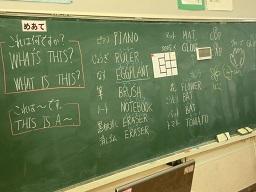 めあて
これは何ですか?
WHAT'S THIS?
WHAT IS THIS?
これは〜です。
THIS IS A〜
ピアノ PIANO
じょうぎ RULER
なす EGGPLANT
筆 BRUSH
ノート NOTEBOOK
黒板消し ERASER
消しゴム ERASER
HAT
GLOVE
花 FLOWER
BAT
BAT
トマト TOMATO